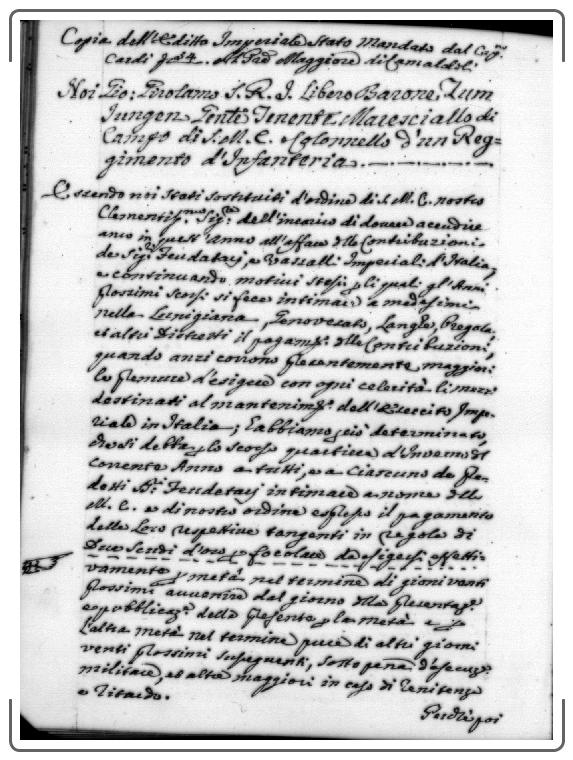 Copia dell'Editto Imperiale Stato Mandato dal Cap.no
Cardi Al Pre Maggiore di Camaldoli
Noi Gio: Girolamo S. R. I. Libero Barone, Zum
Jungen Tente Tenente Maresciallo di
Campo di S. M. C. e Colonnello d'un Reg=
gimento d'Infanteria.
Essendo noi Stati sostituiti d'ordine di S. M. C. nostro
Clementiss.mo Sig.re dell'incarico di dovere accudire
anco in quest'anno all'affare delle Contribuzioni
de Sig.ri Feudatarj, e Vassalli Imperiali d'Italia,
e continuando motivi stessi, p li quali gl'Anni
prossimi scorsi si fece intimare a medesimi
nella Lunigiana, Genovesato, Langhe,
et altri Distretti il pagam.to delle Contribuzioni,
quando anzi corrono presentemente maggiori
le premure d'esigere con ogni celerità li mezzi
destinati al mantenim.to dell'Esercito Impe-
riale in Italia; Abbiamo p ciò determinato,
che si debba p lo scorso quartiere d'Inverno del
Corrente Anno a tutti, e a Ciascuno de pre-
detti SS.ri Feudetarj intimare a nome della
M. C. e di nostro ordine espresso il pagamento
delle Loro respetive tangenti in regola di
Due Scudi d'oro p focolare da esigersi effetti-
vamente p metà nel termine di giorni venti
prossimi avvenire dal giorno della presentaz.e
e pubblicaz.e della presente p la metà e p
l'altra metà nel termine pure di altri giorni
venti prossimi susseguenti, sotto pena d'esecuz.e
militare, et altre maggiori in caso di renitenza
o ritardo.
poi